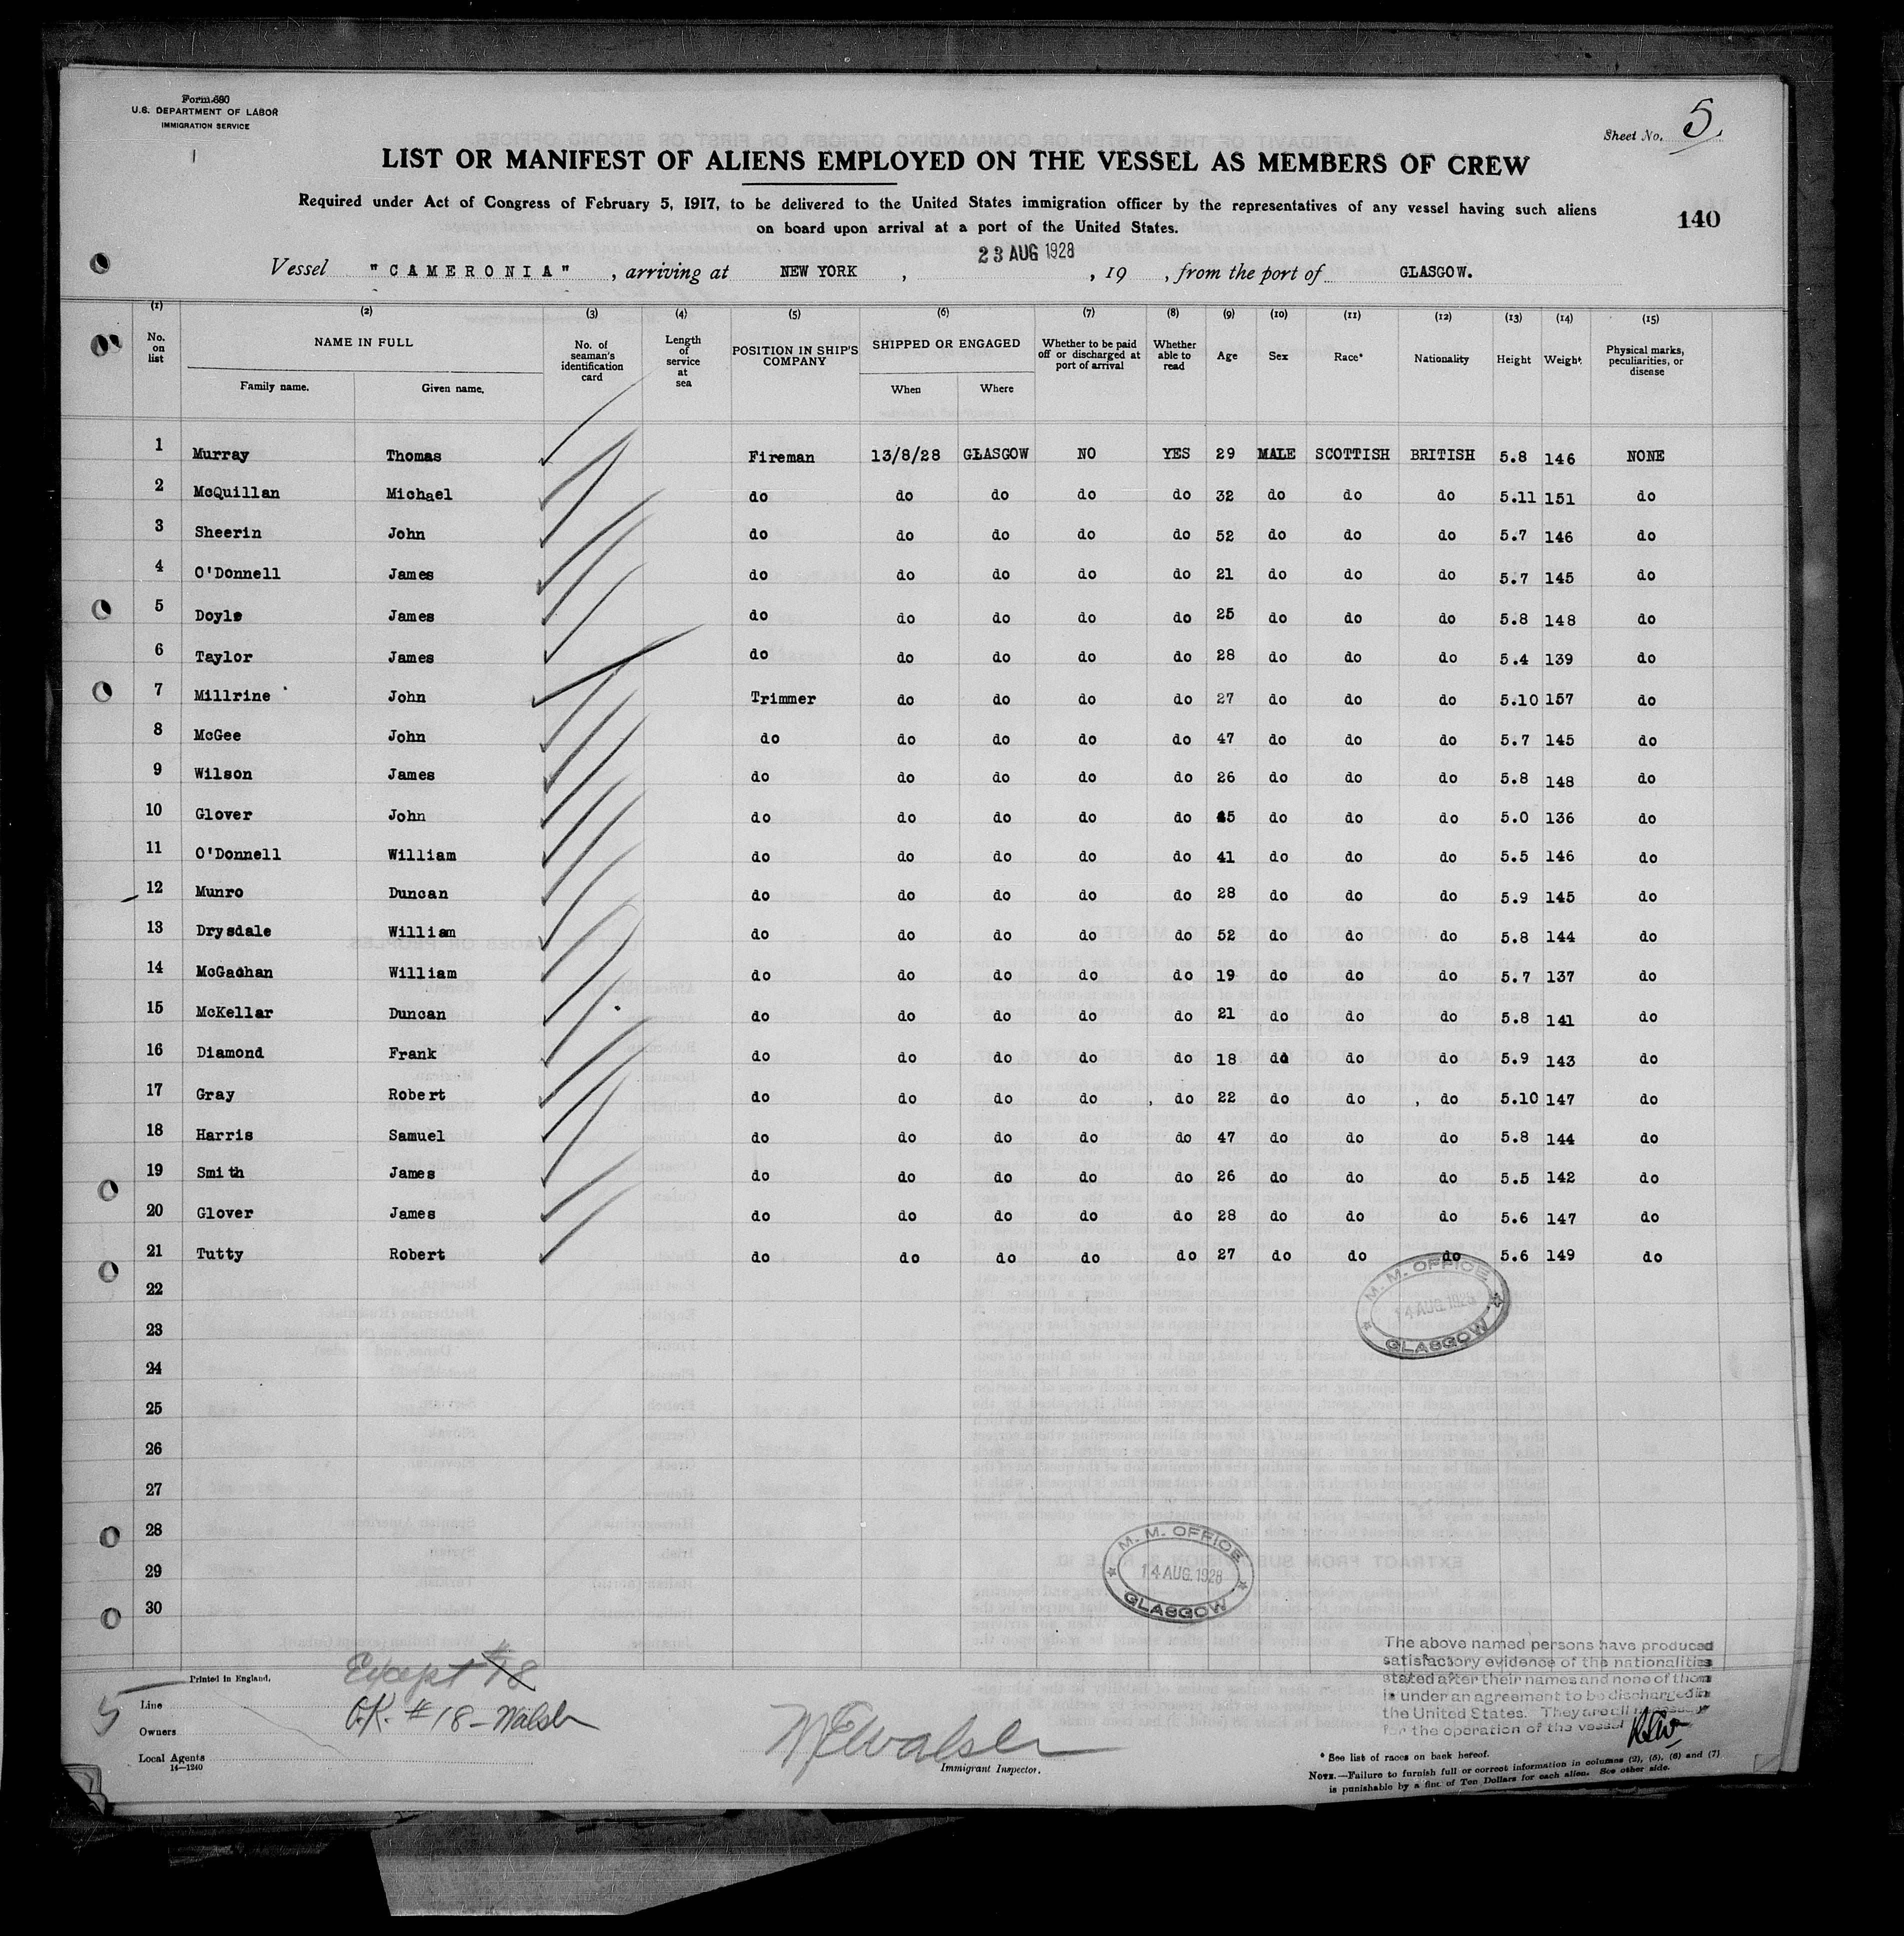 Form 680
U.S. DEPARTMENT OF LABOR
IMMIGRATION SERVICE
Sheet No. 5.
LIST OR MANIFEST OF ALIENS EMPLOYED ON THE VESSEL AS MEMBERS OF CREW
Required under Act of Congress of February 5, 1917, to be delivered to the United States immigration officer by the representatives of any vessel having such aliens
on board upon arrival at a port of the United States.
140
23 AUG 1928
Vessel "CAMERONIA", arriving at NEW YORK, , 19 , from the port of GLASGOW.
(1) (2) (3) (4) (5) (6) (7) (8) (9) (10) (11) (12) (13) (14) (15)
No. on list NAME IN FULL Family name. Given name. No. of seaman's identification card Length of service at sea POSITION IN SHIP'S COMPANY SHIPPED OR ENGAGED When Where Whether to be paid off or discharged at port of arrival Whether able to read Age Sex Race* Nationality Height Weight. Physical marks, peculiarities, or disease
1 Murray Thomas Fireman 13/8/28 GLASGOW NO YES 29 MALE SCOTTISH BRITISH 5.8 146 NONE
2 McQuillan Michael do do do do do 32 do do do 5.11 151 do
3 Sheerin John do do do do do 52 do do do 5.7 146 do
4 O'Donnell James do do do do do 21 do do do 5.7 145 do
5 Doyle James do do do do do 25 do do do 5.8 148 do
6 Taylor James do do do do do 28 do do do 5.4 139 do
7 Millrine John Trimmer do do do do 27 do do do 5.10 157 do
8 McGee John do do do do do 47 do do do 5.7 145 do
9 Wilson James do do do do do 26 do do do 5.8 148 do
10 Glover John do do do do do 45 do do do 5.0 136 do
11 O'Donnell William do do do do do 41 do do do 5.5 146 do
12 Munro Duncan do do do do do 28 do do do 5.9 145 do
13 Drysdale William do do do do do 52 do do do 5.8 144 do
14 McGachan William do do do do do 19 do do do 5.7 137 do
15 McKellar Duncan do do do do do 21 do do do 5.8 141 do
16 Diamond Frank do do do do do 18 do do do 5.9 143 do
17 Gray Robert do do do do do 22 do do do 5.10 147 do
18 Harris Samuel do do do do do 47 do do do 5.8 144 do
19 Smith James do do do do do 26 do do do 5.5 142 do
20 Glover James do do do do do 28 do do do 5.6 147 do
21 Tutty Robert do do do do do 27 do do do 5.6 149 do
22
23
24
25
26
27
28
29
30
M. M. OFFICE
14 AUG. 1928
GLASGOW
M. M. OFFICE
14 AUG. 1928
GLASGOW
The above named persons have produced
satisfactory evidence of the nationalities
stated after their names and none of them
is under an agreement to be discharged in
the United States. They are all necessary
for the operation of the vessel
Printed in England.
Except #18
O.K. #18 - Walsh
5
Line
Owners
Local Agents
14—1240
Walsh
Immigrant Inspector.
* See list of races on back hereof.
NOTE.—Failure to furnish full or correct information in columns (2), (5), (6) and (7)
is punishable by a fine of Ten Dollars for each alien. See other side.